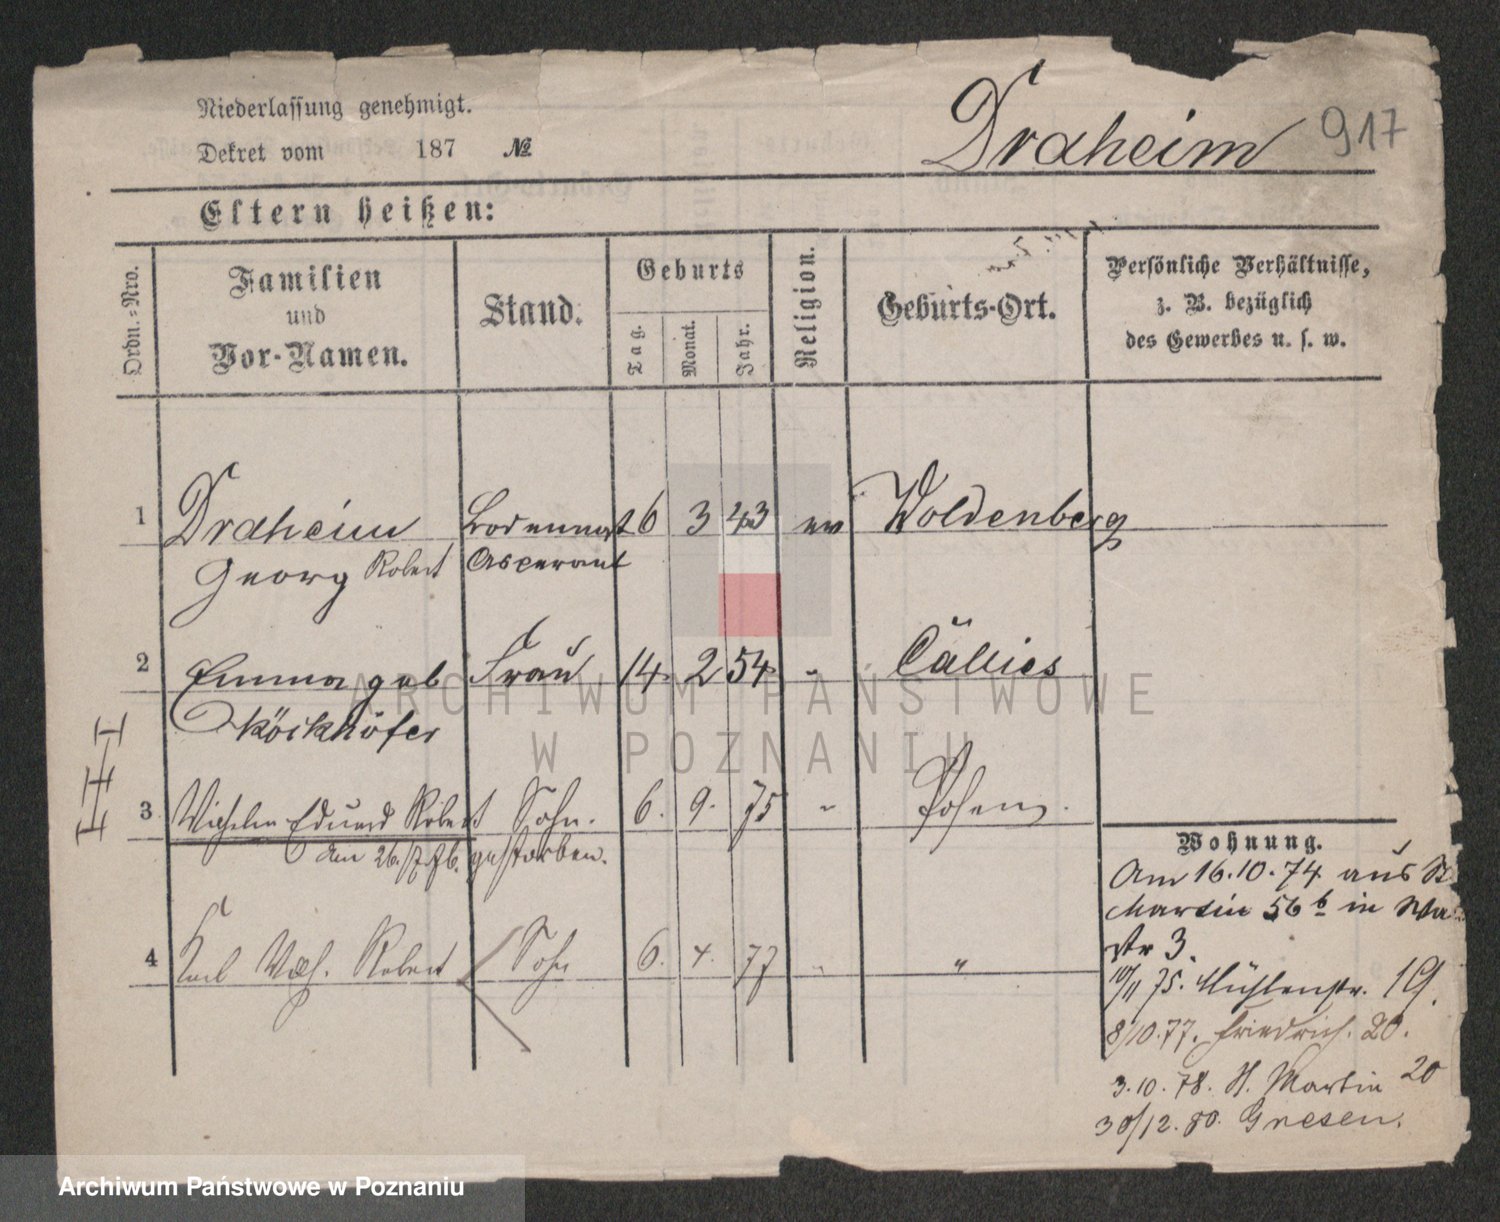 Draheim 917
Niederlassung genehmigt.
Dekret vom 187 №
Eltern heißen:
Ordn.-Nro.
Familien
und
Vor-Namen.
Stand.
Geburts
Tag.
Monat.
Jahr.
Religion.
Geburts-Ort.
Persönliche Verhältnisse,
z. B. bezüglich
des Gewerbes u. s. w.
1 Draheim 6 3 43 ev Woldenberg
Georg Robert Asperant
2 Emma geb Frau 14. 2 54 " Callies
3 Wilhelm Eduard Robert Sohn. 6. 9. 75 " Posen.
am 26. gestorben.
4 Karl Robert Sohn 6. 4. 77 " "
Wohnung.
Am 16.10.74 aus St
Martin 56 b in Wa
str 3.
10/11 75. Mühlenstr. 19.
8/10.77. Friedrich. 20.
3.10.78. St. Martin 20
30/12.80. Gnesen.
ARCHIWUM PAŃSTWOWE
W POZNANIU
Archiwum Państwowe w Poznaniu